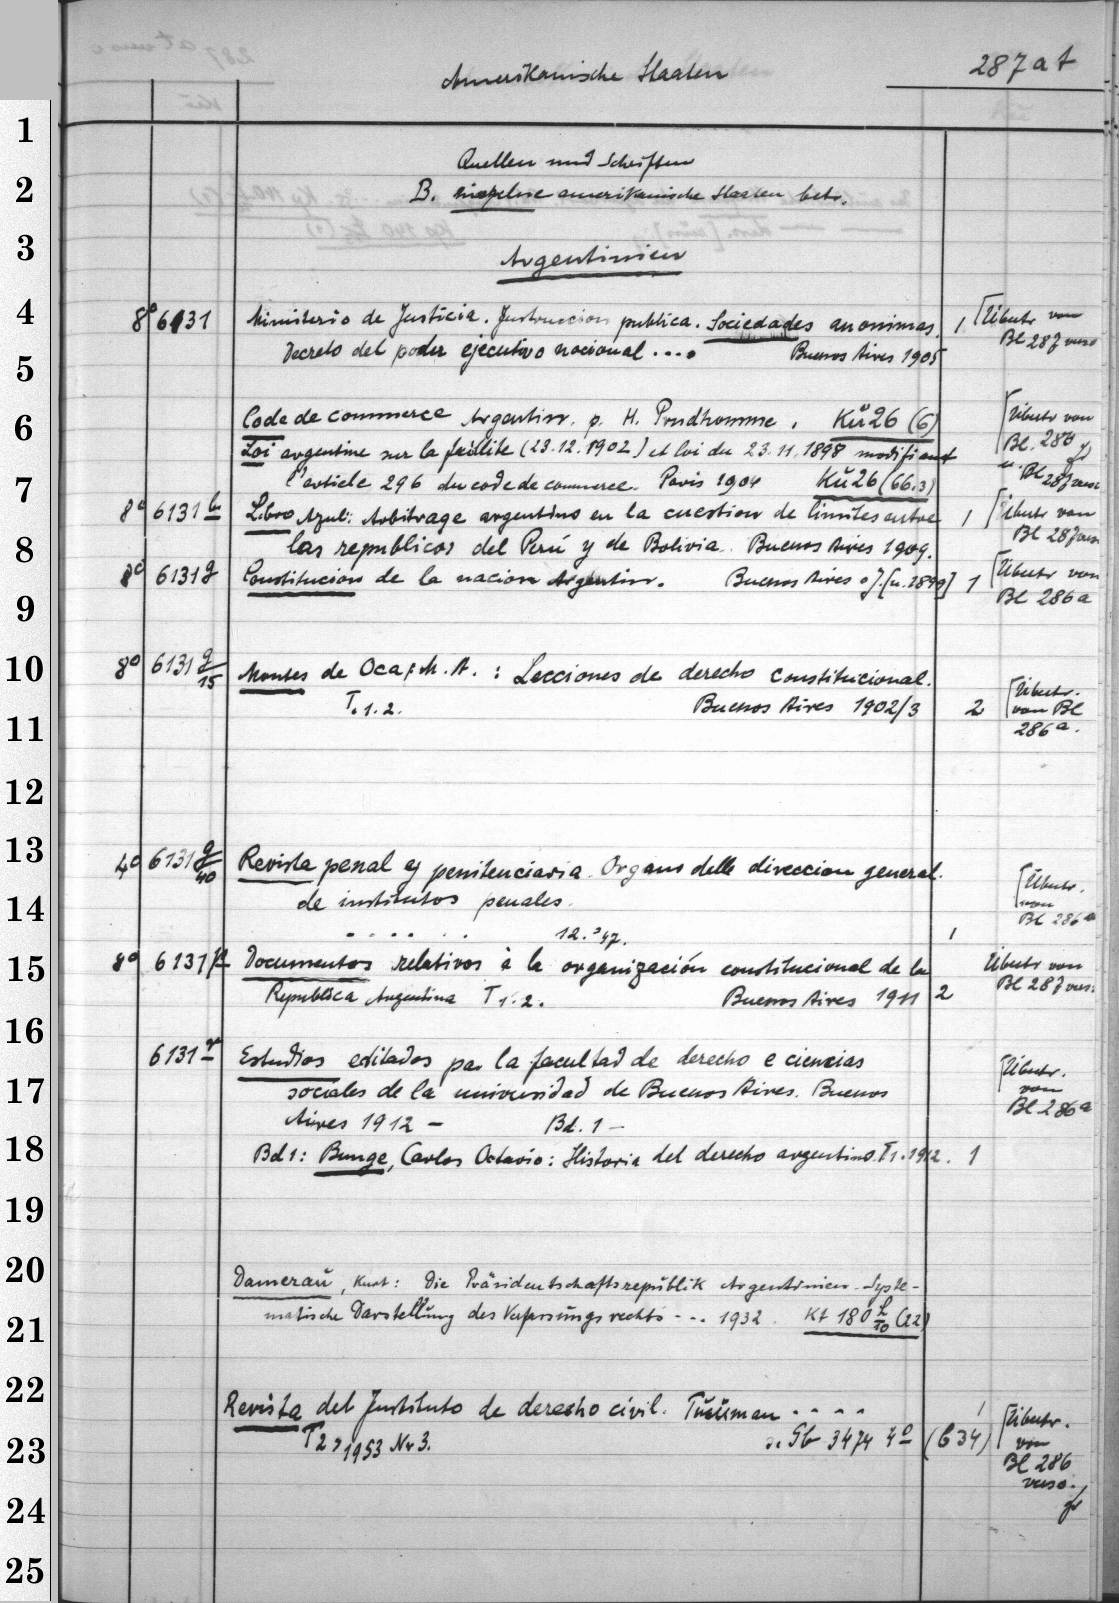 Amerikanische Staaten 287 a t
1
Quellen und Schriften
2 B. einzelne amerikanische Staaten betr.
3 Argentinien
4 8° 6131 Ministerio de Justicia. Instruccion publica. Sociedades anonimas. 1 [Übertr von
Decreto del poder ejecutivo nacional .... Buenos Aires 1905 Bl 287 verso
5
6 Code de commerce Argentin. p. H. Prudhomme. Kü 26 (6) [Übertr von
Loi argentine sur la faillite (23.12.1902) et loi du 23.11.1898 modifiant Bl. 286
7 l'article 296 du code de commerce. Paris 1904 Kü 26 (66.3) u. Bl 287 verso
8° 6131 b Libro Azul: Arbitrage argentino en la cuestion de limites entre 1 [Übertr von
8 las republicas del Perú y de Bolivia. Buenos Aires 1909. Bl 287 verso
8° 6131 g Constitucion de la nacion Argentin. Buenos Aires o J. [u. 1899] 1 [Übertr von
9 Bl 286 a
10 8° 6131 g/15 Montes de Oca, M. A. : Lecciones de derecho constitucional. [Übertr.
T. 1. 2. Buenos Aires 1902/3 2 von Bl
11 286 a.
12
13 4° 6131 g/40 Revista penal y penitenciaria. Organo delle direccion general. [Übertr.
14 de institutos penales. von
. . . . . . 12. '47. 1 Bl 286 a
15 8° 6131 p Documentos relativos à la organización constitucional de la Übertr von
Republica Argentina T 1. 2. Buenos Aires 1911 2 Bl 287 verso
16
6131 r Estudios editados pa. la facultad de derecho e ciencias [Übertr.
17 sociales de la universidad de Buenos Aires. Buenos von
Aires 1912 – Bd. 1 – Bl 286 a
18 Bd 1: Bunge, Carlos Octavio: Historia del derecho argentino. T 1. 1912. 1
19
20 Damerau, Kurt: Die Präsidentschaftsrepublik Argentinien. Syste-
21 matische Darstellung des Verfassungsrechts - .. 1932. Kt 180 L/10 (22)
22 Revista del Instituto de derecho civil. Tucuman . . . . 1 [Übertr.
23 T 2, 1953 Nr 3. s. Gb 3474 4° (634) von
Bl 286
24 verso.
25